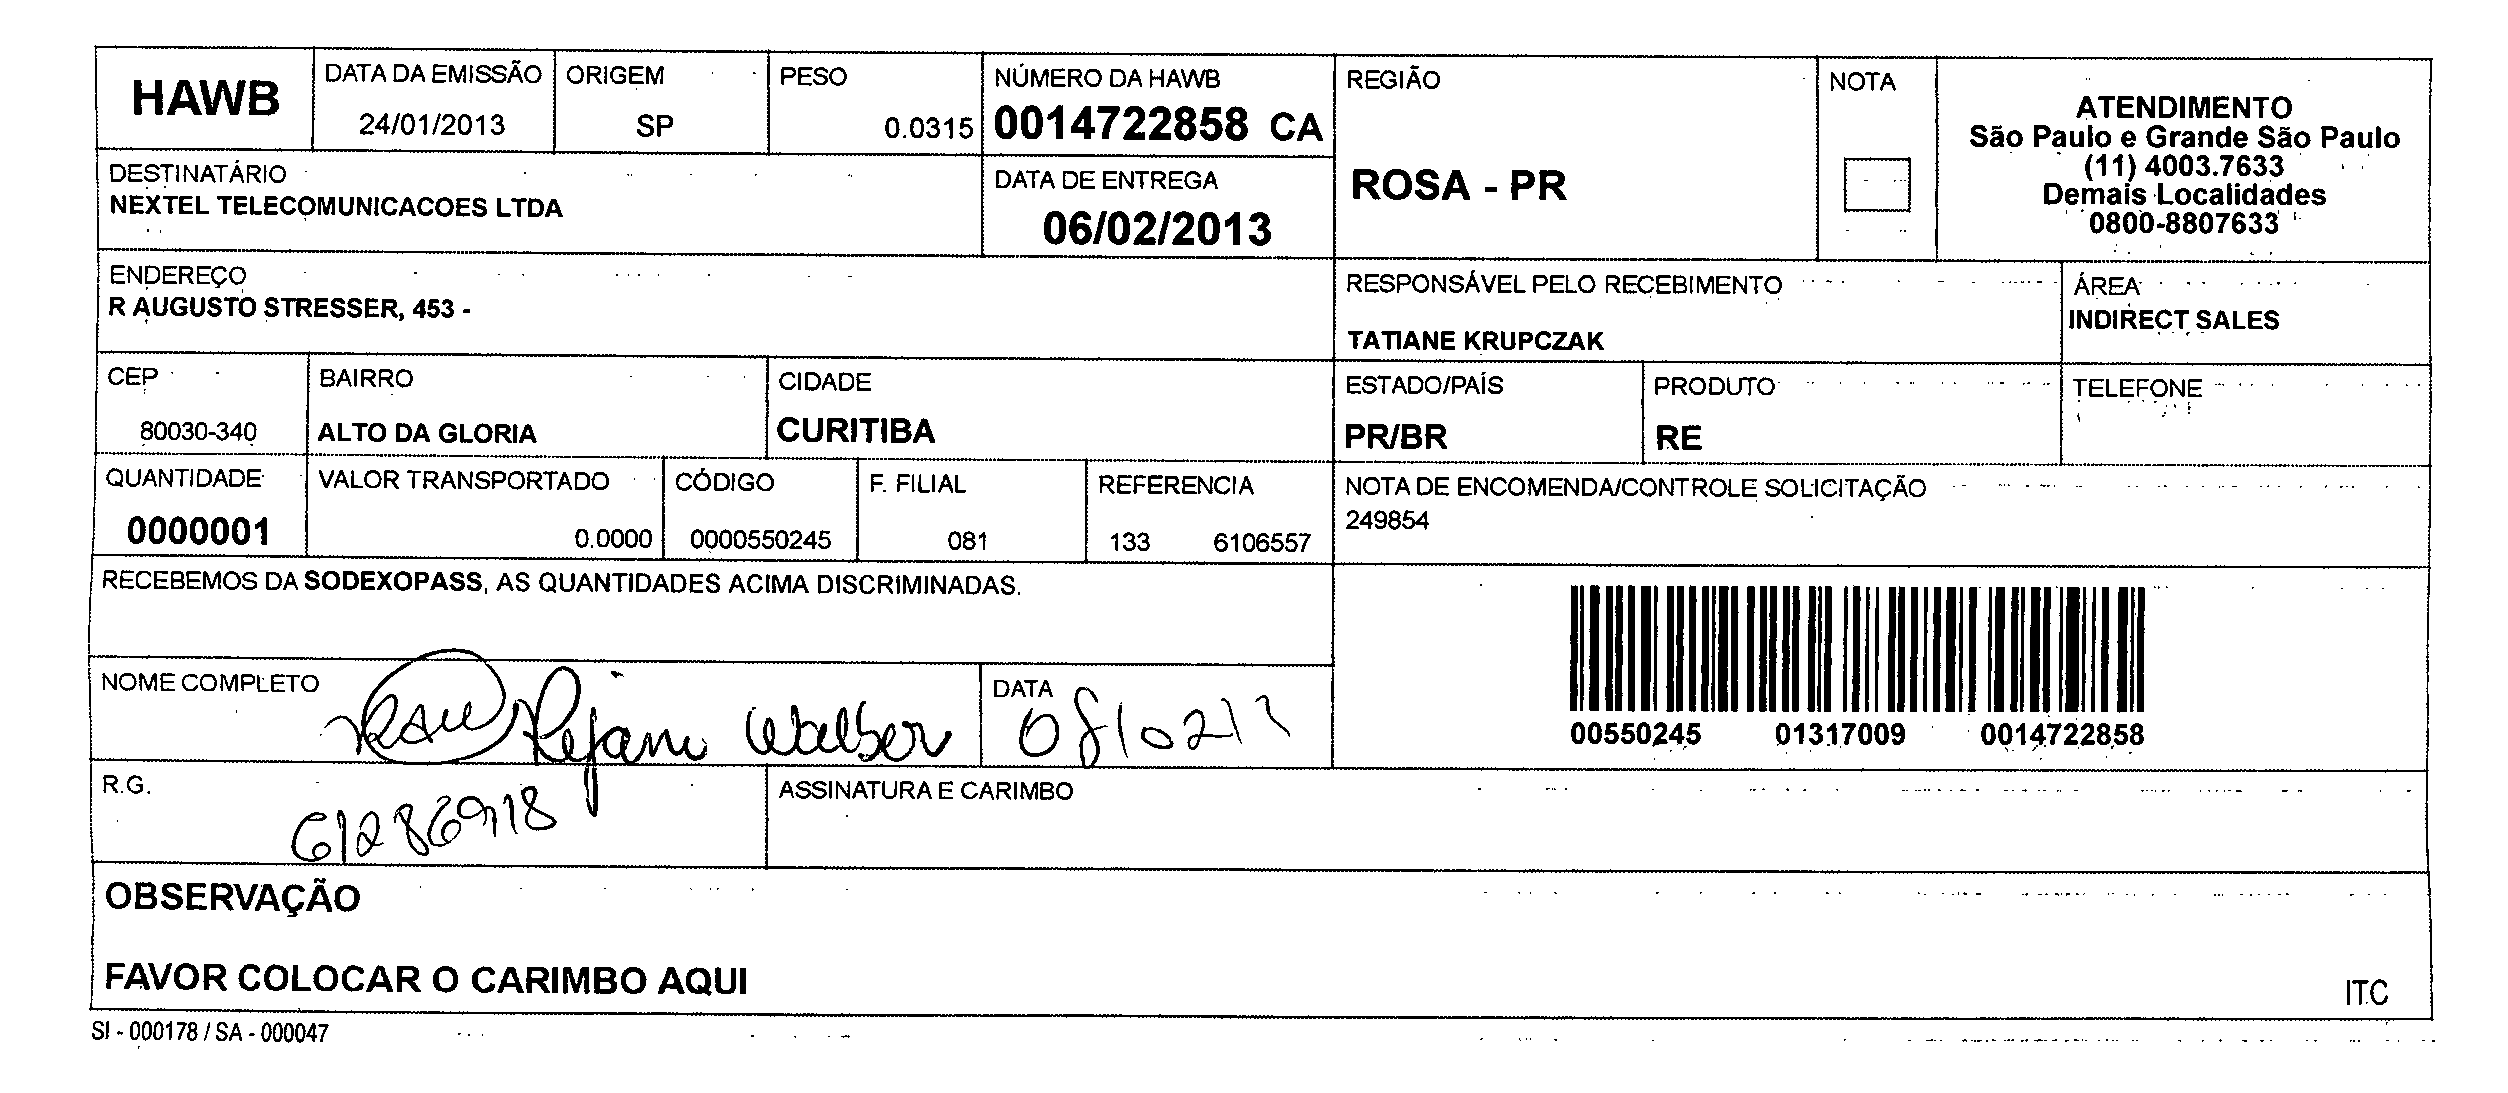 HAWB
DATA DA EMISSÃO
24/01/2013
ORIGEM
SP
PESO
0.0315
NÚMERO DA HAWB
0014722858 CA
REGIÃO
ROSA - PR
NOTA
ATENDIMENTO
São Paulo e Grande São Paulo
(11) 4003.7633
Demais Localidades
0800-8807633
DESTINATÁRIO
NEXTEL TELECOMUNICACOES LTDA
DATA DE ENTREGA
06/02/2013
ENDEREÇO
R AUGUSTO STRESSER, 453 -
RESPONSÁVEL PELO RECEBIMENTO
TATIANE KRUPCZAK
ÁREA
INDIRECT SALES
CEP
80030-340
BAIRRO
ALTO DA GLORIA
CIDADE
CURITIBA
ESTADO/PAÍS
PR/BR
PRODUTO
RE
TELEFONE
QUANTIDADE
0000001
VALOR TRANSPORTADO
0.0000
CÓDIGO
0000550245
F. FILIAL
081
REFERENCIA
133 6106557
NOTA DE ENCOMENDA/CONTROLE SOLICITAÇÃO
249854
RECEBEMOS DA SODEXOPASS, AS QUANTIDADES ACIMA DISCRIMINADAS.
00550245 01317009 0014722858
NOME COMPLETO
Rejani Walber
DATA
R.G.
ASSINATURA E CARIMBO
OBSERVAÇÃO
FAVOR COLOCAR O CARIMBO AQUI
ITC
SI - 000178 / SA - 000047